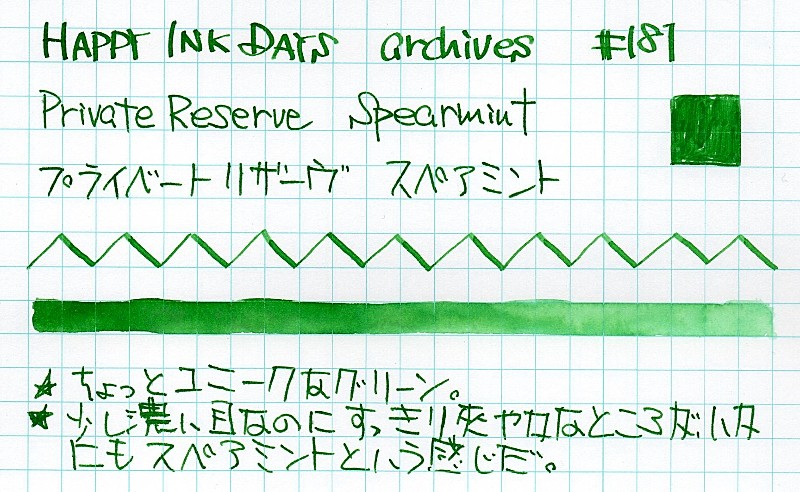 HAPPY INK DAYS archives #187
Private Reserve Spearmint
プライベートリザーヴ スペアミント
★ ちょっとユニークなグリーン。
★ 少し濃い目なのにすっきり爽やかなところがいかにもスペアミントという感じだ。